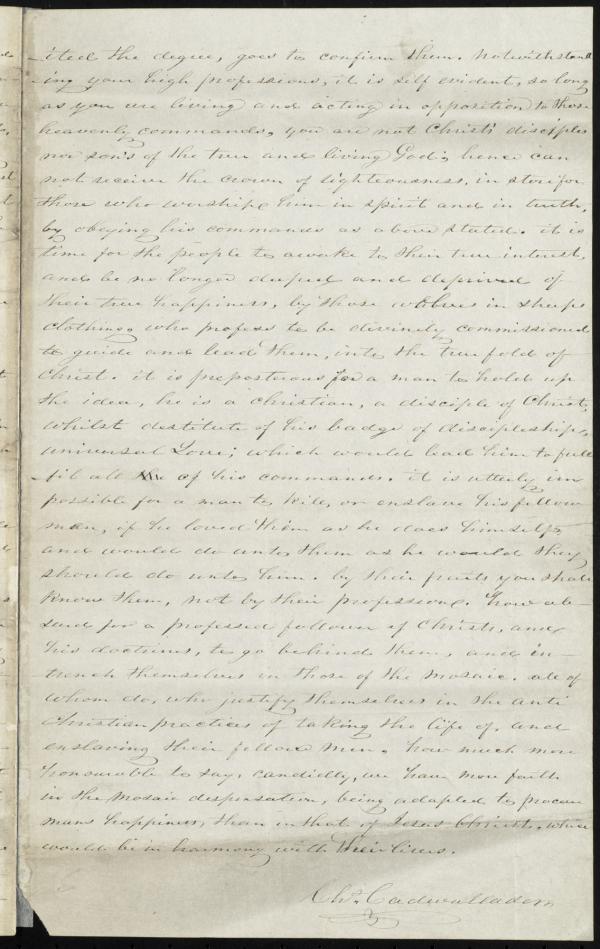 -ited the degree, goes to confirm them. Notwithstand
ing your high professions, it is self evident, so long
as you are living and acting in opposition to those
heavenly commands, you are not Christ's disciples
nor son's of the true and living God; hence can
not receive the crown of righteousness, in store for
those who worship him in spirit and in truth,
by obeying his commands as above stated. it is
time for the people to awake to their true interest,
and be no longer duped and deprived of
their true happiness, by those wolves in sheeps
clothing, who profess to be divinely commissioned
to guide and lead them, into the true fold of
Christ. it is preposterous for a man to hold up
the idea, he is a christian, a disciple of Christ,
whilst destitute of his badge of discipleship,
universal Love; which would lead him to full
-fil all of his commands. it is utterly im
possible for a man to kill, or enslave his fellow
man, if he loved them as he does himself,
and would do unto them as he would they
should do unto him. by their fruits you shall
know them, not by their professions. how ab-
surd for a professed follower of Christ, and
his doctrines, to go behind them, and in-
trench themselves in those of the Mosaic. all of
whom do, who justify themselves in the anti
christian practices of taking the life of, and
enslaving their fellow men. how much more
honourable to say, candidly, we have more faith
in the Mosaic dispensation, being adapted to procure
mans happiness, than in that of Jesus Christ, which
would be in harmony with their lives.
Chs. Cadwallader